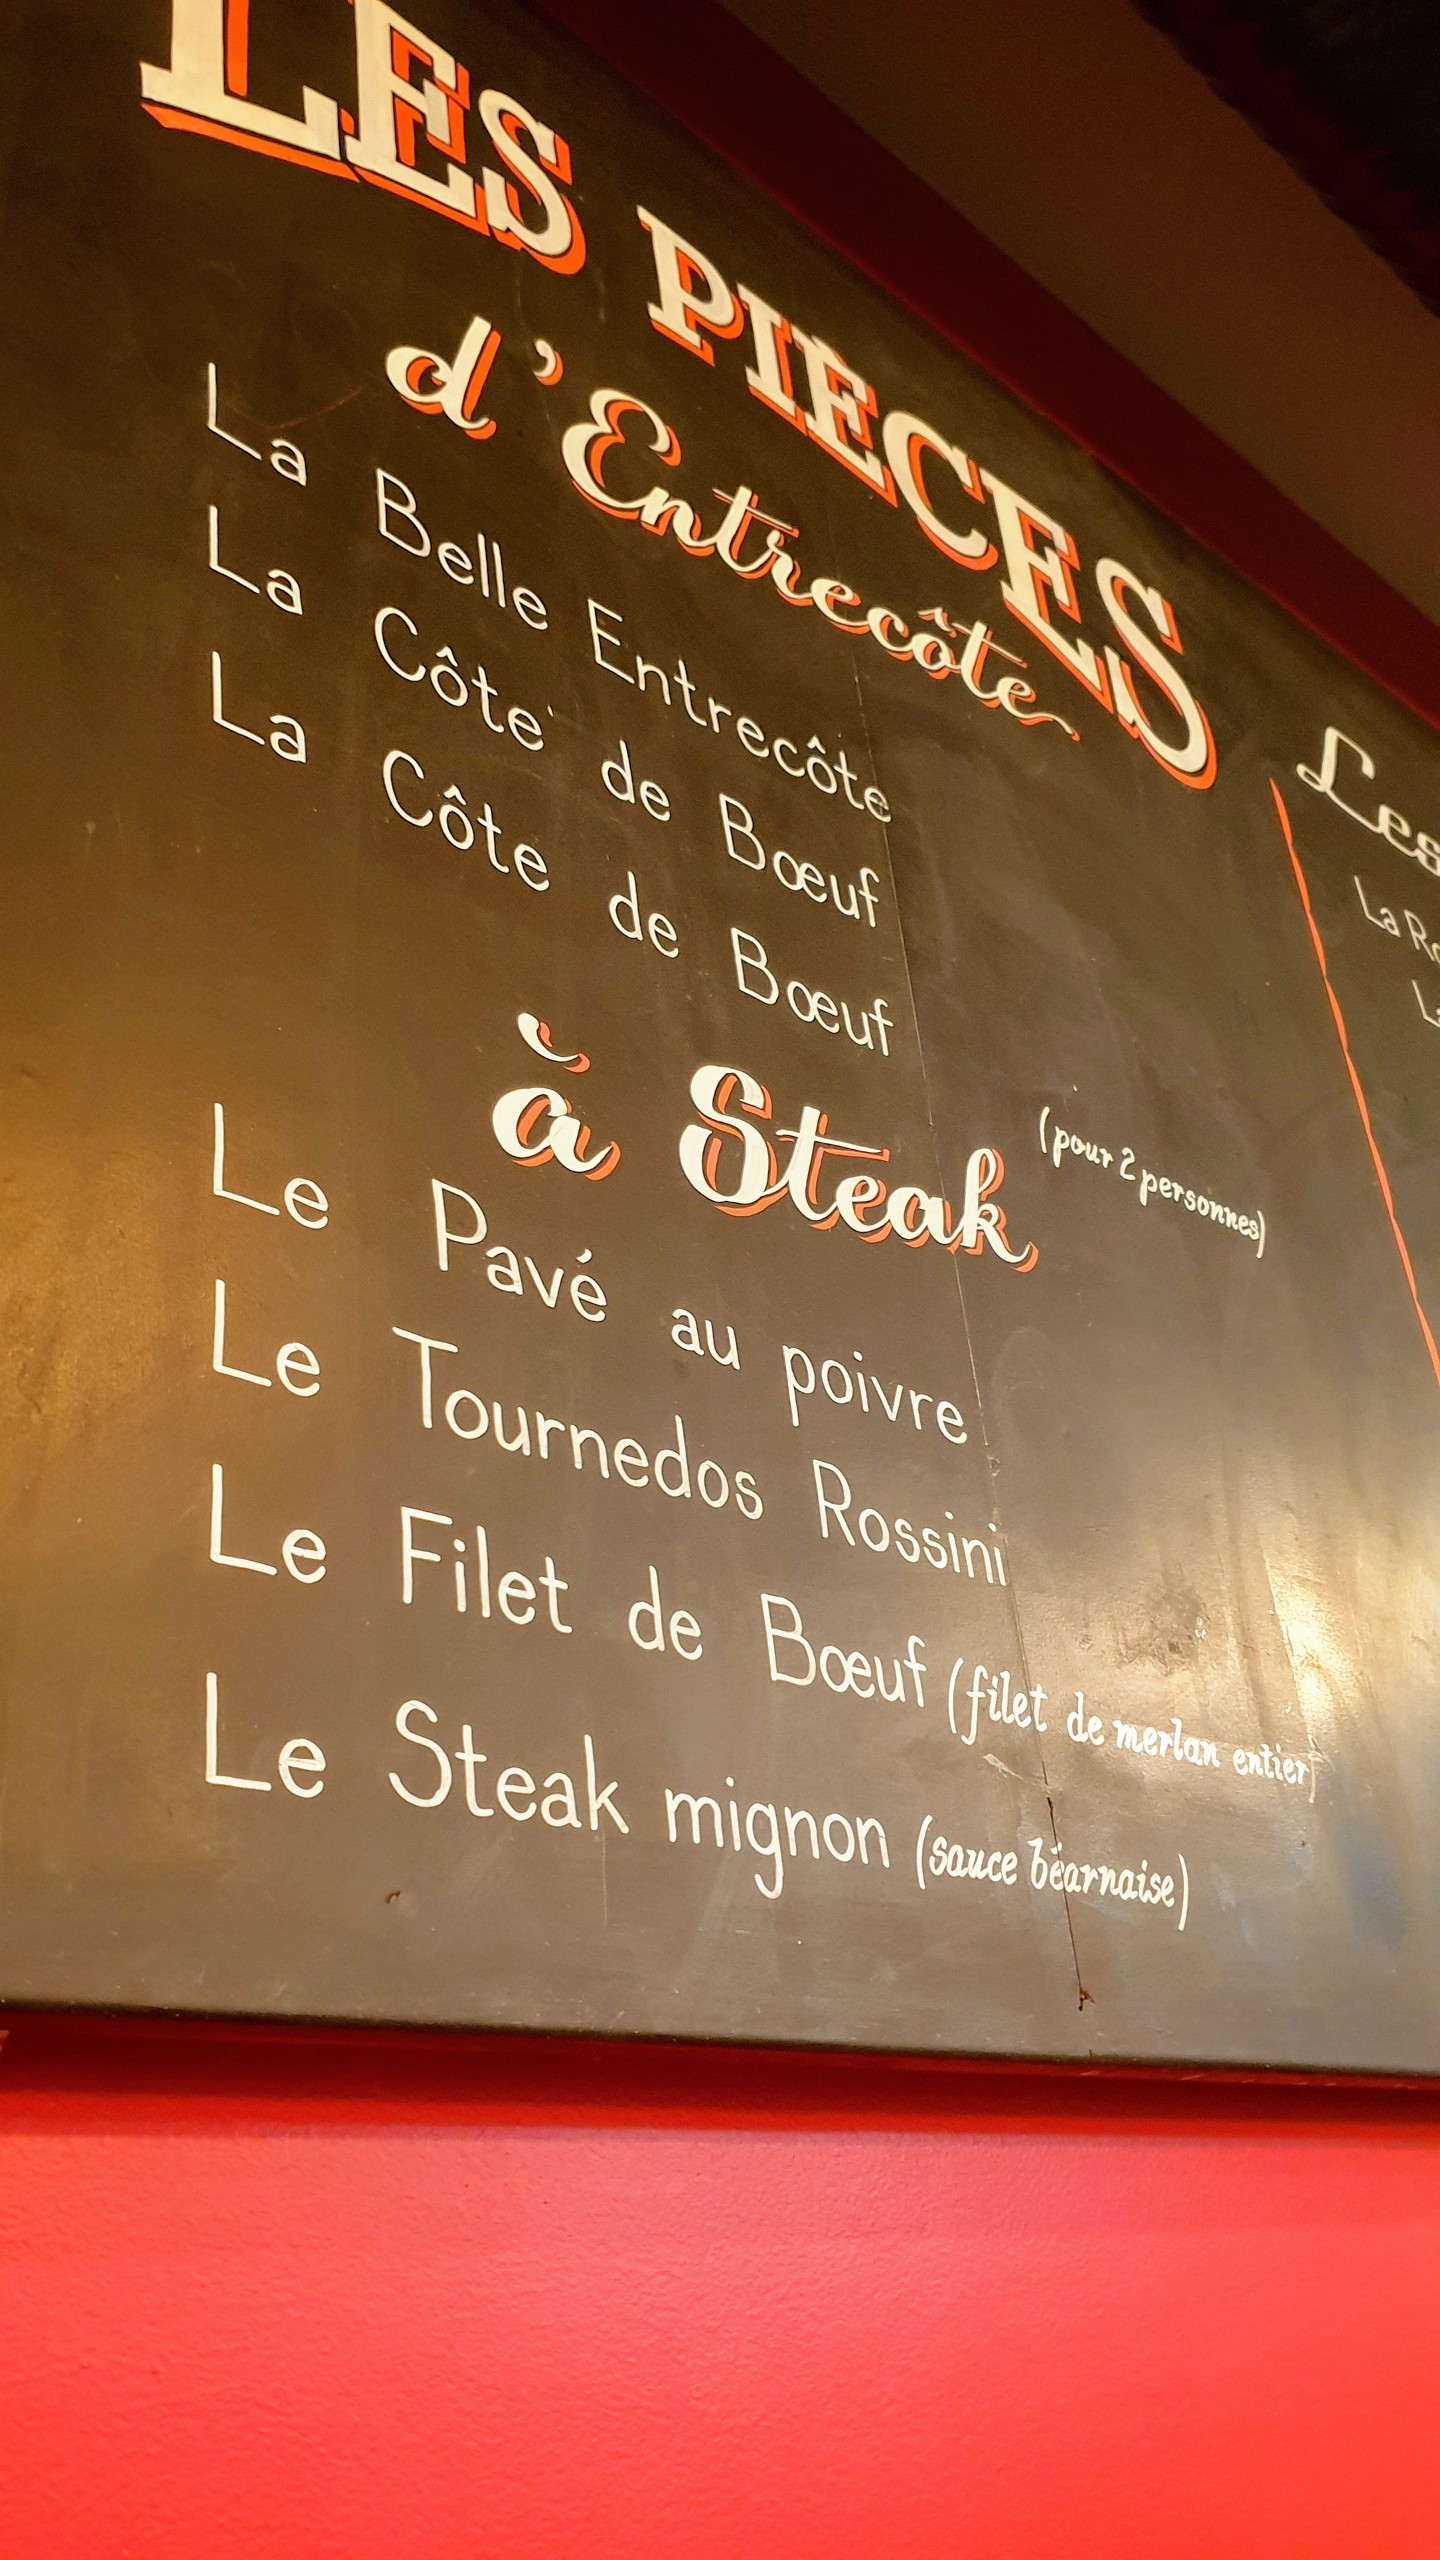 LES PIÈCES
d'Entrecôte
La Belle Entrecôte
La Côte de Bœuf
La Côte de Bœuf (pour 2 personnes)
à Steak
Le Pavé au poivre
Le Tournedos Rossini
Le Filet de Bœuf (filet de merlan entier)
Le Steak mignon (sauce béarnaise)
Les
La
La